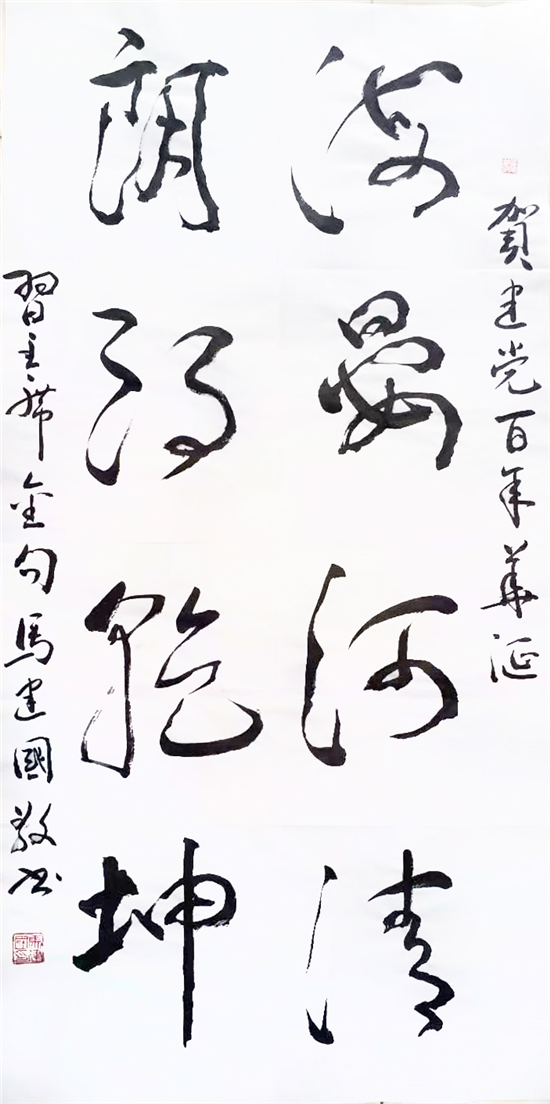 贺建党百年華诞
海晏河清
朗朗乾坤
習主席金句馬建國敬书